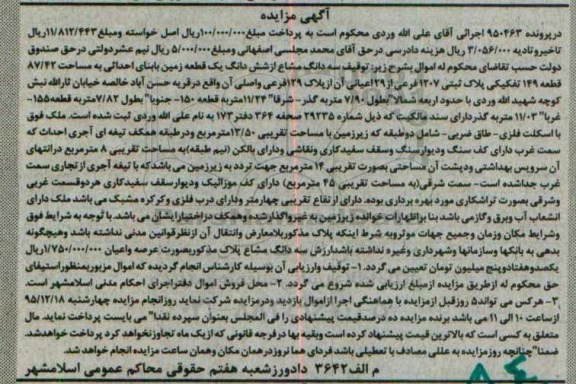 آگهی مزایده
درپرونده ۹۵۰۴۶۳ اجرائی آقای علی الله وردی محکوم است به پرداخت مبلغ۱۰۰/۰۰۰/۰۰۰ریال اصل خواسته ومبلغ۱۱/۸۱۲/۴۴۳ریال
تاخیرتادیه ۳/۰۵۶/۰۰۰ ریال هزینه دادرسی درحق آقای محمد مجلسی اصفهانی ومبلغ۵/۰۰۰/۰۰۰ریال نیم عشردولتی درحق صندوق
دولت حسب تقاضای محکوم له اموال بشرح زیر توقیف سه دانگ مشاع ازشش دانگ یک قطعه زمین بابنای احداثی به مساحت ۸۷/۴۲
قطعه ۱۴۹ تفکیکی پلاک ثبتی ۱۲۰۷فرعی از۲۹اعیانی آن ازپلاک ۱۲۹فرعی واصلی آن واقع درقریه حسن آباد خالصه خیابان ثارالله نبش
کوچه شهید الله وردی با حدود اربعه شمالا" بطول ۷/۹۰ متربه گذر- شرقا" ۱۱/۲۴متربه قطعه ۱۵۰- جنوبا" بطول ۷/۸۲متربه قطعه۱۵۵-
غربا" ۱۱/۰۳ متربه گذردارای سند مالکیت که ذیل شماره ۲۹۲۳۵ صفحه ۳۶۴ دفتر۱۷۳ به نام علی الله وردی ثبت شده است. ملک فوق
با اسکلت فلزی - طاق ضربی - شامل دوطبقه که زیرزمین با مساحت تقریبی ۱۳/۵۰مترمربع ودرطبقه همکف تیغه ای آجری احداث که
سمت غرب دارای کف سنگ ودیوارسنگ وسقف سفیدکاری ونقاشی ودارای بالکن (نیم طبقه)به مساحت تقریبی ۸ مترمربع درانتهای
آن سرویس بهداشتی ودپشت آن مساحتی بصورت تقریبی ۱۴ مترمربع جهت تردد به زیرزمین می باشدکه با تیغه آجری ازتجاری سمت
غرب جداشده است- سمت شرقی(به مساحت تقریبی ۴۵ مترمربع) دارای کف موزائیک ودیوارسقف سفیدکاری هردوقسمت غربی
وشرقی بصورت تراشکاری مورد بهره برداری بوده. دارای ارتفاع تقریبی چهارمتر ودارای درب فلزی وکرکره مشبک می باشد ملک دارای
انشعاب آب وبرق وگازمی باشد بنا براظهارات خوانده زیرزمین به غیرواگذارشده وهمکف دراختیارایشان می باشد. با توجه به شرایط فوق
وشرایط مکان وزمان وجمیع جهات موثروبه شرط اینکه پلاک مذکوربلامعارض وانتقال آن ازنظرقوانین مدنی نداشته باشد وهیچگونه
بدهی به بانکها وسازمانها وشهرداری وغیره نداشته باشدارزش سه دانگ مشاع پلاک مذکوربصورت عرصه واعیان ۱/۷۵۰/۰۰۰/۰۰۰ریال
یکصدوهفتادوپنج میلیون تومان تعیین می گردد. ۱- توقیف وارزیابی آن بوسیله کارشناس انجام گردیده که اموال مزبوربمنظوراستیفای
حق محکوم له ازطریق مزایده ازمبلغ ارزیابی شده شروع می گردد. ۲- محل فروش اموال دفتراجرای احکام مدنی اسلامشهر است.
۳- هرکس می تواند۵ روزقبل ازمزایده با هماهنگی اجرا ازاموال بازدید ودرمزایده شرکت نماید روزانجام مزایده چهارشنبه ۹۵/۱۲/۱۸
ازساعت ۱۰ الی ۱۱ می باشد برنده مزایده ده درصدقیمت پیشنهادی را فی المجلس بعنوان سپرده نقدا" می بایست پرداخت نماید. مال
متعلق به کسی است که بالاترین قیمت پیشنهاد کرده است وبقیه بها درفرجه قانونی که ازیک ماه تجاوزنخواهد کرد پرداخت خواهدشد.
ضمنا"چنانچه روزمزایده به عللی مصادف با تعطیلی باشد فردای همانروزدرهمان مکان وهمان ساعت مزایده انجام خواهد شد.
م الف۳۶۴۲ دادورزشعبه هفتم حقوقی محاکم عمومی اسلامشهر